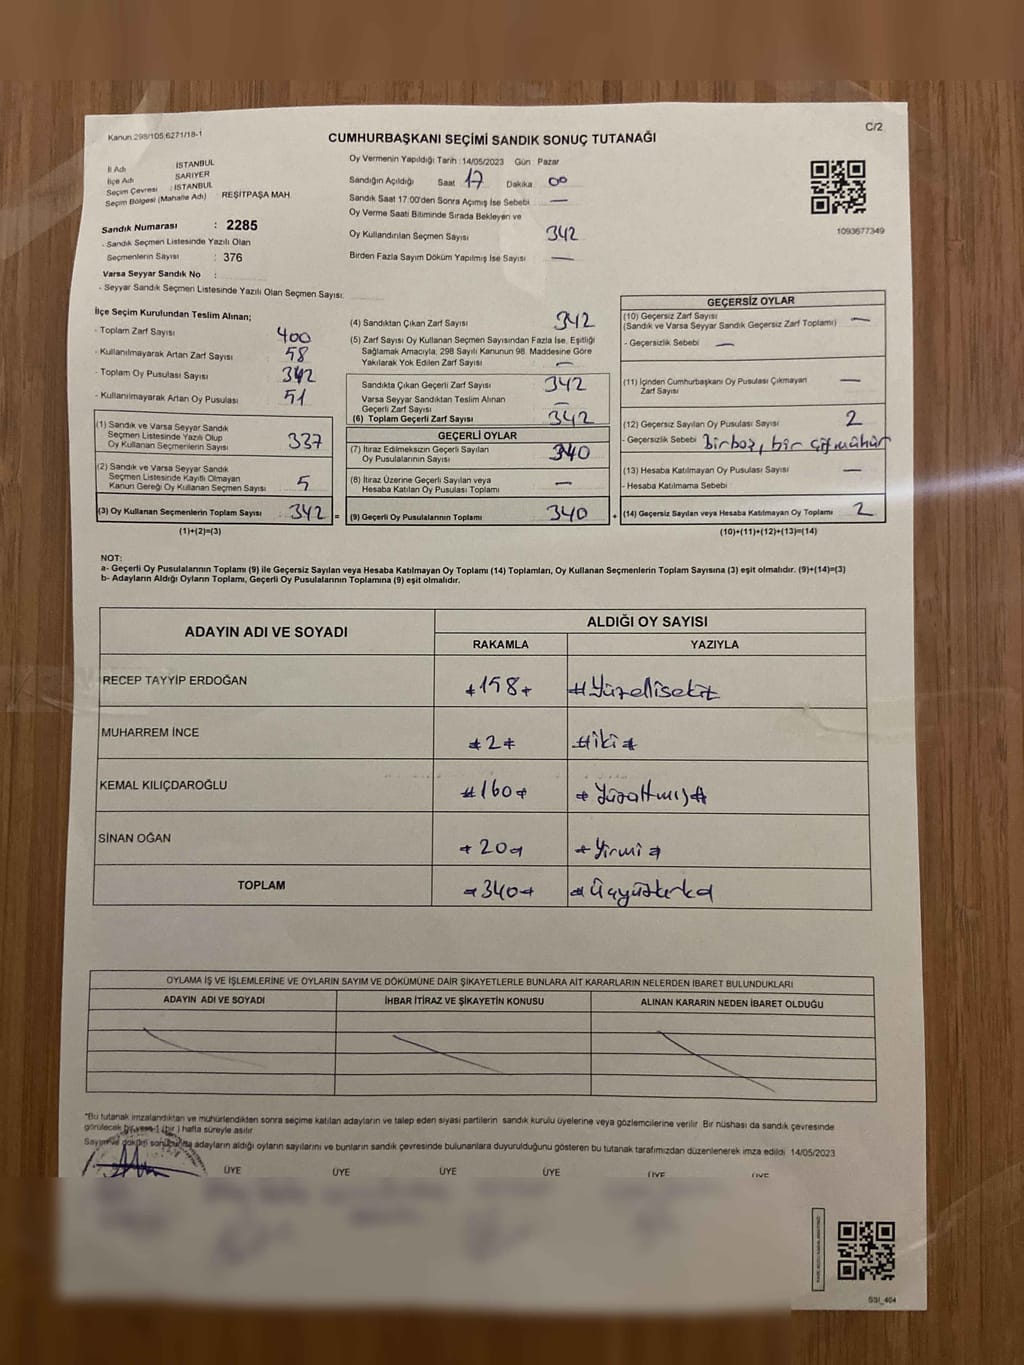 Kanun.298/105,6271/18-1
C/2
CUMHURBAŞKANI SEÇİMİ SANDIK SONUÇ TUTANAĞI
İl Adı İSTANBUL
İlçe Adı SARIYER
Seçim Çevresi : İSTANBUL
Seçim Bölgesi (Mahalle Adı) : REŞİTPAŞA MAH
Sandık Numarası : 2285
- Sandık Seçmen Listesinde Yazılı Olan
Seçmenlerin Sayısı : 376
Varsa Seyyar Sandık No :
- Seyyar Sandık Seçmen Listesinde Yazılı Olan Seçmen Sayısı:
Oy Vermenin Yapıldığı Tarih :14/05/2023 Gün Pazar
Sandığın Açıldığı Saat 17 Dakika 00
Sandık Saat 17:00'den Sonra Açımış İse Sebebi —
Oy Verme Saati Bitiminde Sırada Bekleyen ve
Oy Kullandırılan Seçmen Sayısı 342
Birden Fazla Sayım Döküm Yapılmış İse Sayısı —
1093677349
İlçe Seçim Kurulundan Teslim Alınan;
- Toplam Zarf Sayısı 400
- Kullanılmayarak Artan Zarf Sayısı 58
- Toplam Oy Pusulası Sayısı 342
- Kullanılmayarak Artan Oy Pusulası 51
(1) Sandık ve Varsa Seyyar Sandık
Seçmen Listesinde Yazılı Olup
Oy Kullanan Seçmenlerin Sayısı 337
(2) Sandık ve Varsa Seyyar Sandık
Seçmen Listesinde Kayıtlı Olmayan
Kanun Gereği Oy Kullanan Seçmen Sayısı 5
(3) Oy Kullanan Seçmenlerin Toplam Sayısı 342 =
(1)+(2)=(3)
(4) Sandıktan Çıkan Zarf Sayısı 342
(5) Zarf Sayısı Oy Kullanan Seçmen Sayısından Fazla İse, Eşitliği
Sağlamak Amacıyla, 298 Sayılı Kanunun 98. Maddesine Göre
Yakılarak Yok Edilen Zarf Sayısı —
Sandıkta Çıkan Geçerli Zarf Sayısı 342
Varsa Seyyar Sandıktan Teslim Alınan
Geçerli Zarf Sayısı —
(6) Toplam Geçerli Zarf Sayısı 342
GEÇERLİ OYLAR
(7) İtiraz Edilmeksizin Geçerli Sayılan
Oy Pusulalarının Sayısı 340
(8) İtiraz Üzerine Geçerli Sayılan veya
Hesaba Katılan Oy Pusulası Toplamı —
(9) Geçerli Oy Pusulalarının Toplamı 340 +
GEÇERSİZ OYLAR
(10) Geçersiz Zarf Sayısı —
(Sandık ve Varsa Seyyar Sandık Geçersiz Zarf Toplamı)
- Geçersizlik Sebebi —
(11) İçinden Cumhurbaşkanı Oy Pusulası Çıkmayan
Zarf Sayısı —
(12) Geçersiz Sayılan Oy Pusulası Sayısı 2
- Geçersizlik Sebebi Bir boş, bir çift mühür
(13) Hesaba Katılmayan Oy Pusulası Sayısı —
- Hesaba Katılmama Sebebi
(14) Geçersiz Sayılan veya Hesaba Katılmayan Oy Toplamı 2
(10)+(11)+(12)+(13)=(14)
NOT:
a- Geçerli Oy Pusulalarının Toplamı (9) ile Geçersiz Sayılan veya Hesaba Katılmayan Oy Toplamı (14) Toplamları, Oy Kullanan Seçmenlerin Toplam Sayısına (3) eşit olmalıdır. (9)+(14)=(3)
b- Adayların Aldığı Oyların Toplamı, Geçerli Oy Pusulalarının Toplamına (9) eşit olmalıdır.
ADAYIN ADI VE SOYADI
ALDIĞI OY SAYISI
RAKAMLA YAZIYLA
RECEP TAYYİP ERDOĞAN #158# #Yüzellisekiz
MUHARREM İNCE #2# #iki#
KEMAL KILIÇDAROĞLU #160# #Yüzaltmış#
SİNAN OĞAN #20# #Yirmi#
TOPLAM #340# #Üçyüzkırk#
OYLAMA İŞ VE İŞLEMLERİNE VE OYLARIN SAYIM VE DÖKÜMÜNE DAİR ŞİKAYETLERLE BUNLARA AİT KARARLARIN NELERDEN İBARET BULUNDUKLARI
ADAYIN ADI VE SOYADI İHBAR İTİRAZ VE ŞİKAYETİN KONUSU ALINAN KARARIN NEDEN İBARET OLDUĞU
*Bu tutanak imzalandıktan ve mühürlendikten sonra seçime katılan adayların ve talep eden siyasi partilerin sandık kurulu üyelerine veya gözlemcilerine verilir. Bir nüshası da sandık çevresinde
görülecek bir yere 1 (bir) hafta süreyle asılır.
Sayım ve döküm sonucunda adayların aldığı oyların sayılarını ve bunların sandık çevresinde bulunanlara duyurulduğunu gösteren bu tutanak tarafımızdan düzenlenerek imza edildi. 14/05/2023
ÜYE ÜYE ÜYE ÜYE ÜYE ÜYE
SSİ_404